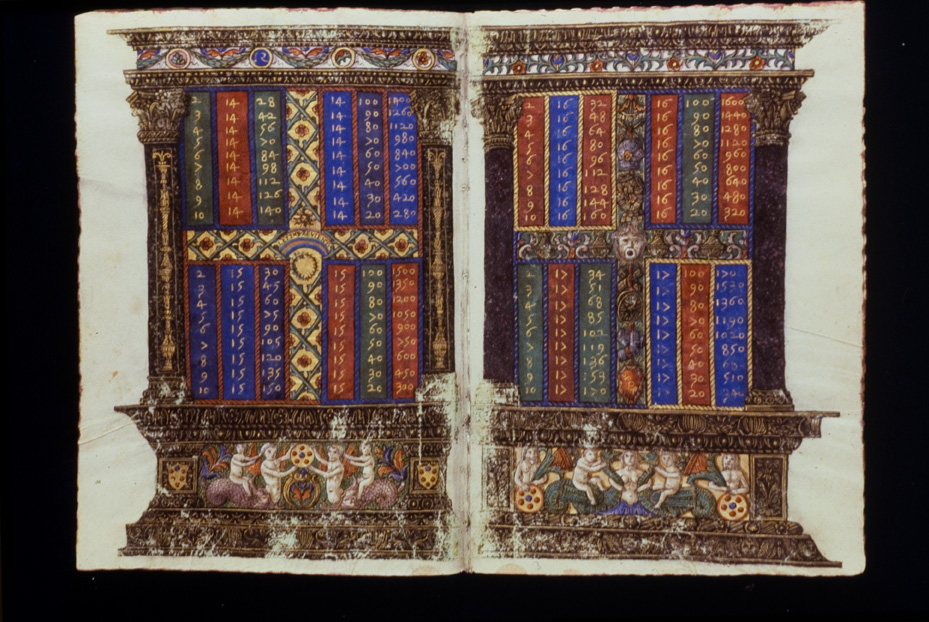 2 14 28
3 14 42
4 14 56
5 14 70
6 14 84
7 14 98
8 14 112
9 14 126
10 14 140
14 100 1400
14 90 1260
14 80 1120
14 70 980
14 60 840
14 50 700
14 40 560
14 30 420
14 20 280
2 15 30
3 15 45
4 15 60
5 15 75
6 15 90
7 15 105
8 15 120
9 15 135
10 15 150
15 100 1500
15 90 1350
15 80 1200
15 70 1050
15 60 900
15 50 750
15 40 600
15 30 450
15 20 300
2 16 32
3 16 48
4 16 64
5 16 80
6 16 96
7 16 112
8 16 128
9 16 144
10 16 160
16 100 1600
16 90 1440
16 80 1280
16 70 1120
16 60 960
16 50 800
16 40 640
16 30 480
16 20 320
2 17 34
3 17 51
4 17 68
5 17 85
6 17 102
7 17 119
8 17 136
9 17 153
10 17 170
17 100 1700
17 90 1530
17 80 1360
17 70 1190
17 60 1020
17 50 850
17 40 680
17 30 510
17 20 340